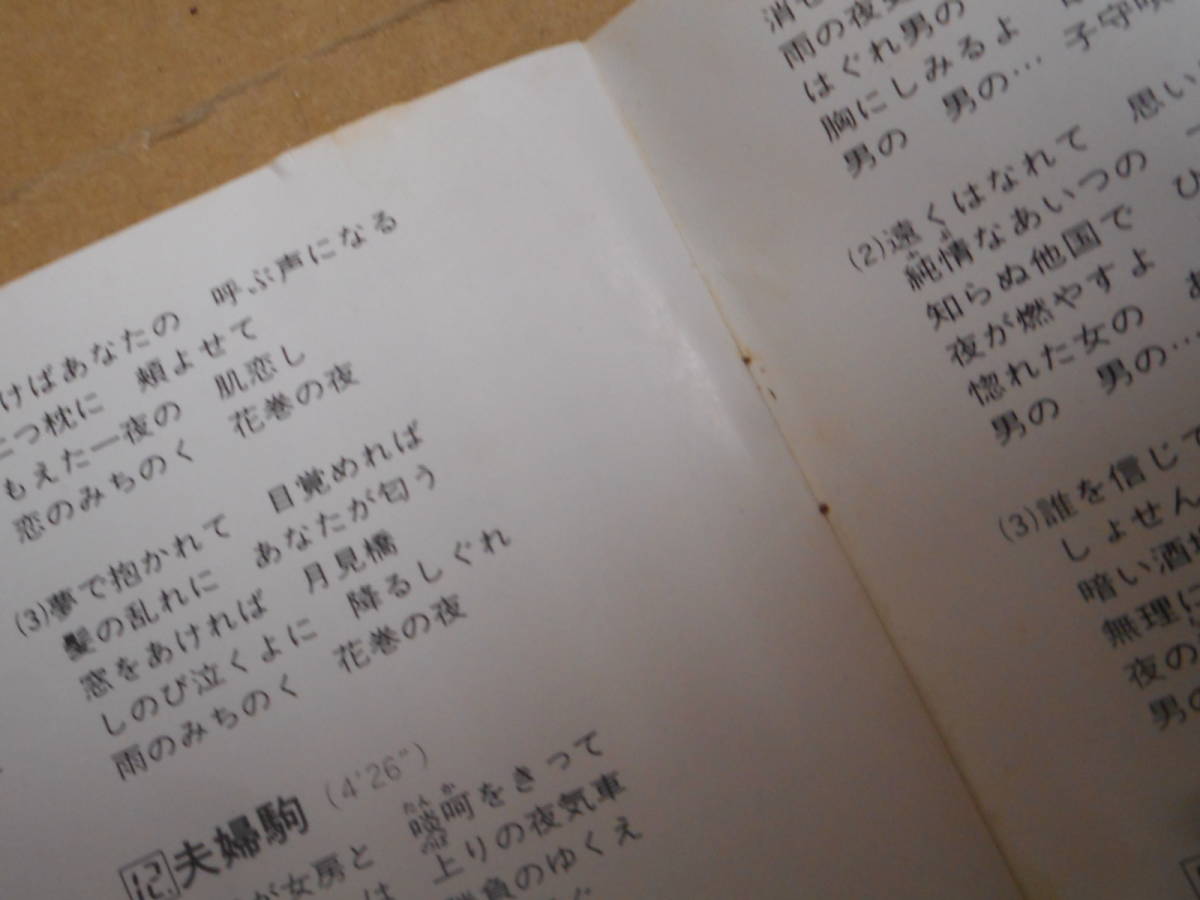 けばあなたの 呼ぶ声になる
つ枕に 頬よせて
もえた一夜の 肌恋し
恋のみちのく 花巻の夜
(3)夢で抱かれて 目覚めれば
髪の乱れに あなたが匂う
窓をあければ 月見橋
しのび泣くよに 降るしぐれ
雨のみちのく 花巻の夜
12 夫婦駒 (4'26")
が女房と 啖呵をきって
たんか
は 上りの夜気車
勝負のゆくえ
雨の夜
はぐれ男の
胸にしみるよ
男の 男の… 子守唄
(2)遠くはなれて 思い
純情なあいつの
知らぬ他国で ひ
夜が燃やすよ
惚れた女の あ
男の 男の…
(3)誰を信じて
しょせん
暗い酒場
無理に
夜の
男の